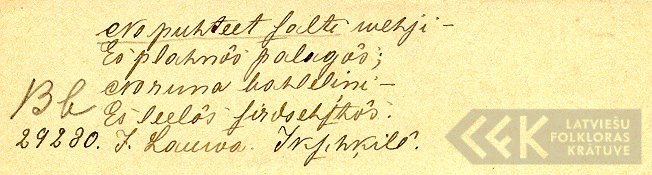 Nopuhteet salti wehji –
Es plahnôs palagôs;
Noruna bahleliņi –
Es leelôs sirdsehstôs.
Bb
29230. J. Lauwa. Ikschķilê.
LATVIEŠU
FOLKLORAS
KRĀTUVE